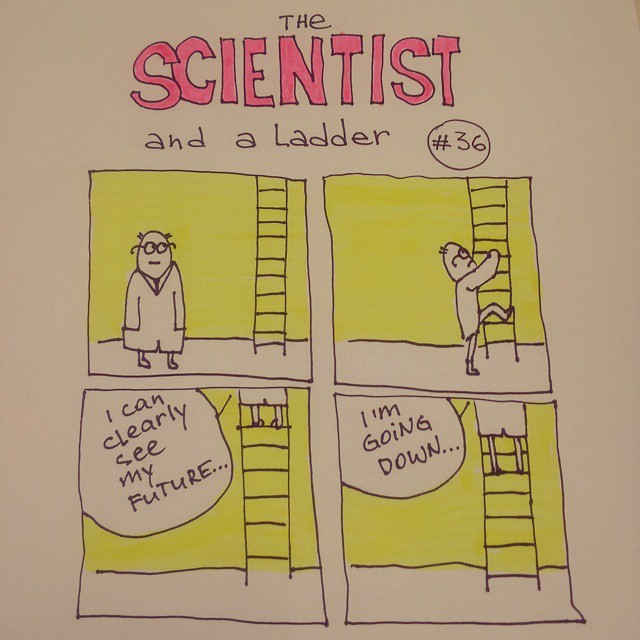 THE
SCIENTIST
and a Ladder
#36
I can
clearly
see
my
FUTURE...
I'M
GOING
DOWN...